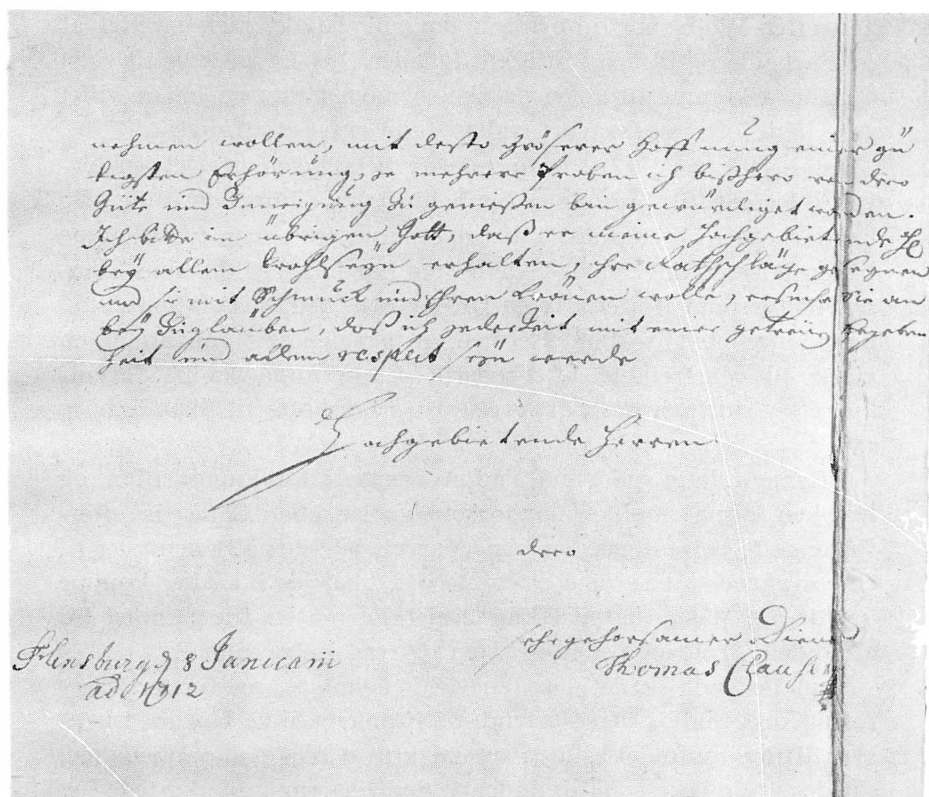 nehmen wollen, mit desto gröserer Hoffnung einer gü
tigsten Erhörung, je mehrere Proben ich bißhero von dero
Güte und Zuneigung zu geniesen bin gewürdiget worden.
Ich bitte im übrigen Gott, daß er meine Hochgebietende
bey allem wohlseyn erhalten, ihre Rathschläge gesegnen
und sie mit Schmuck und Ehren krönen wolle, ersuche sie an
bey zuglauben, daß ich jederzeit mit einer getreuen Ergeben
heit und allem respect seyn werde
Hochgebietende Herren
dero
gehorsamer Diener
Flensburg d 8 Januarii
Thomas Clausen
ad 1712